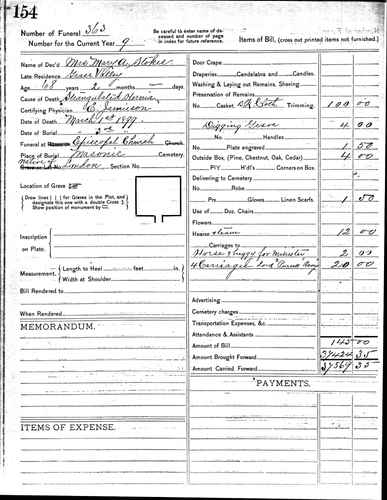 154
Number of Funeral 363
Number for the Current Year 9
Be carefully to enter name of de-
ceased and number of page
in index for future reference.
Items of Bill, (cross out printed items not furnished.)
Name of Dec'd Mrs Mary A. Stokes
Late Residence Grass Valley
Age 68 years 2 months — days.
Cause of Death Strangulated Hernia
Certifying Physician C. Jamieson
Date of Death March 1st 1899.
Date of Burial " 3rd "
Funeral at Episcopal Church
Place of Burial Masonic Cemetery.
Native of London Section No.
Location of Grave
Draw lines for Graves in the Plot, and
designate this one with a double Cross
Show position of monument by
Inscription
on Plate.
Measurement. Length to Heel feet in.
Width at Shoulder
Bill Rendered to
When Rendered
MEMORANDUM.
ITEMS OF EXPENSE.
Door Crape
Draperies Candelabra and Candles.
Washing & Laying out Remains, Shaving
Preservation of Remains.
No. Casket, Blk Cloth Trimming. 100 00
Digging Grave 4 00
No. Handles
Plate engraved 1 50
Outside Box (Pine, Chestnut, Oak, Cedar) 4 00
P'l'Y H'd'l's Corners on Box.
Delivering to Cemetery
No. Robe
Prs. Gloves Linen Scarfs. 1 50
Use of Doz. Chairs
Flowers
Hearse & team 12 00
Carriages to
Horse & buggy for Minister 2 00
4 Carriages 20 00
Advertising
Cemetery charges
Transportation Expenses, &c.
Attendance & Assistants
Amount of Bill 145 00
Amount Brought Forward 37424 35
Amount Carried Forward 37569 35
PAYMENTS.